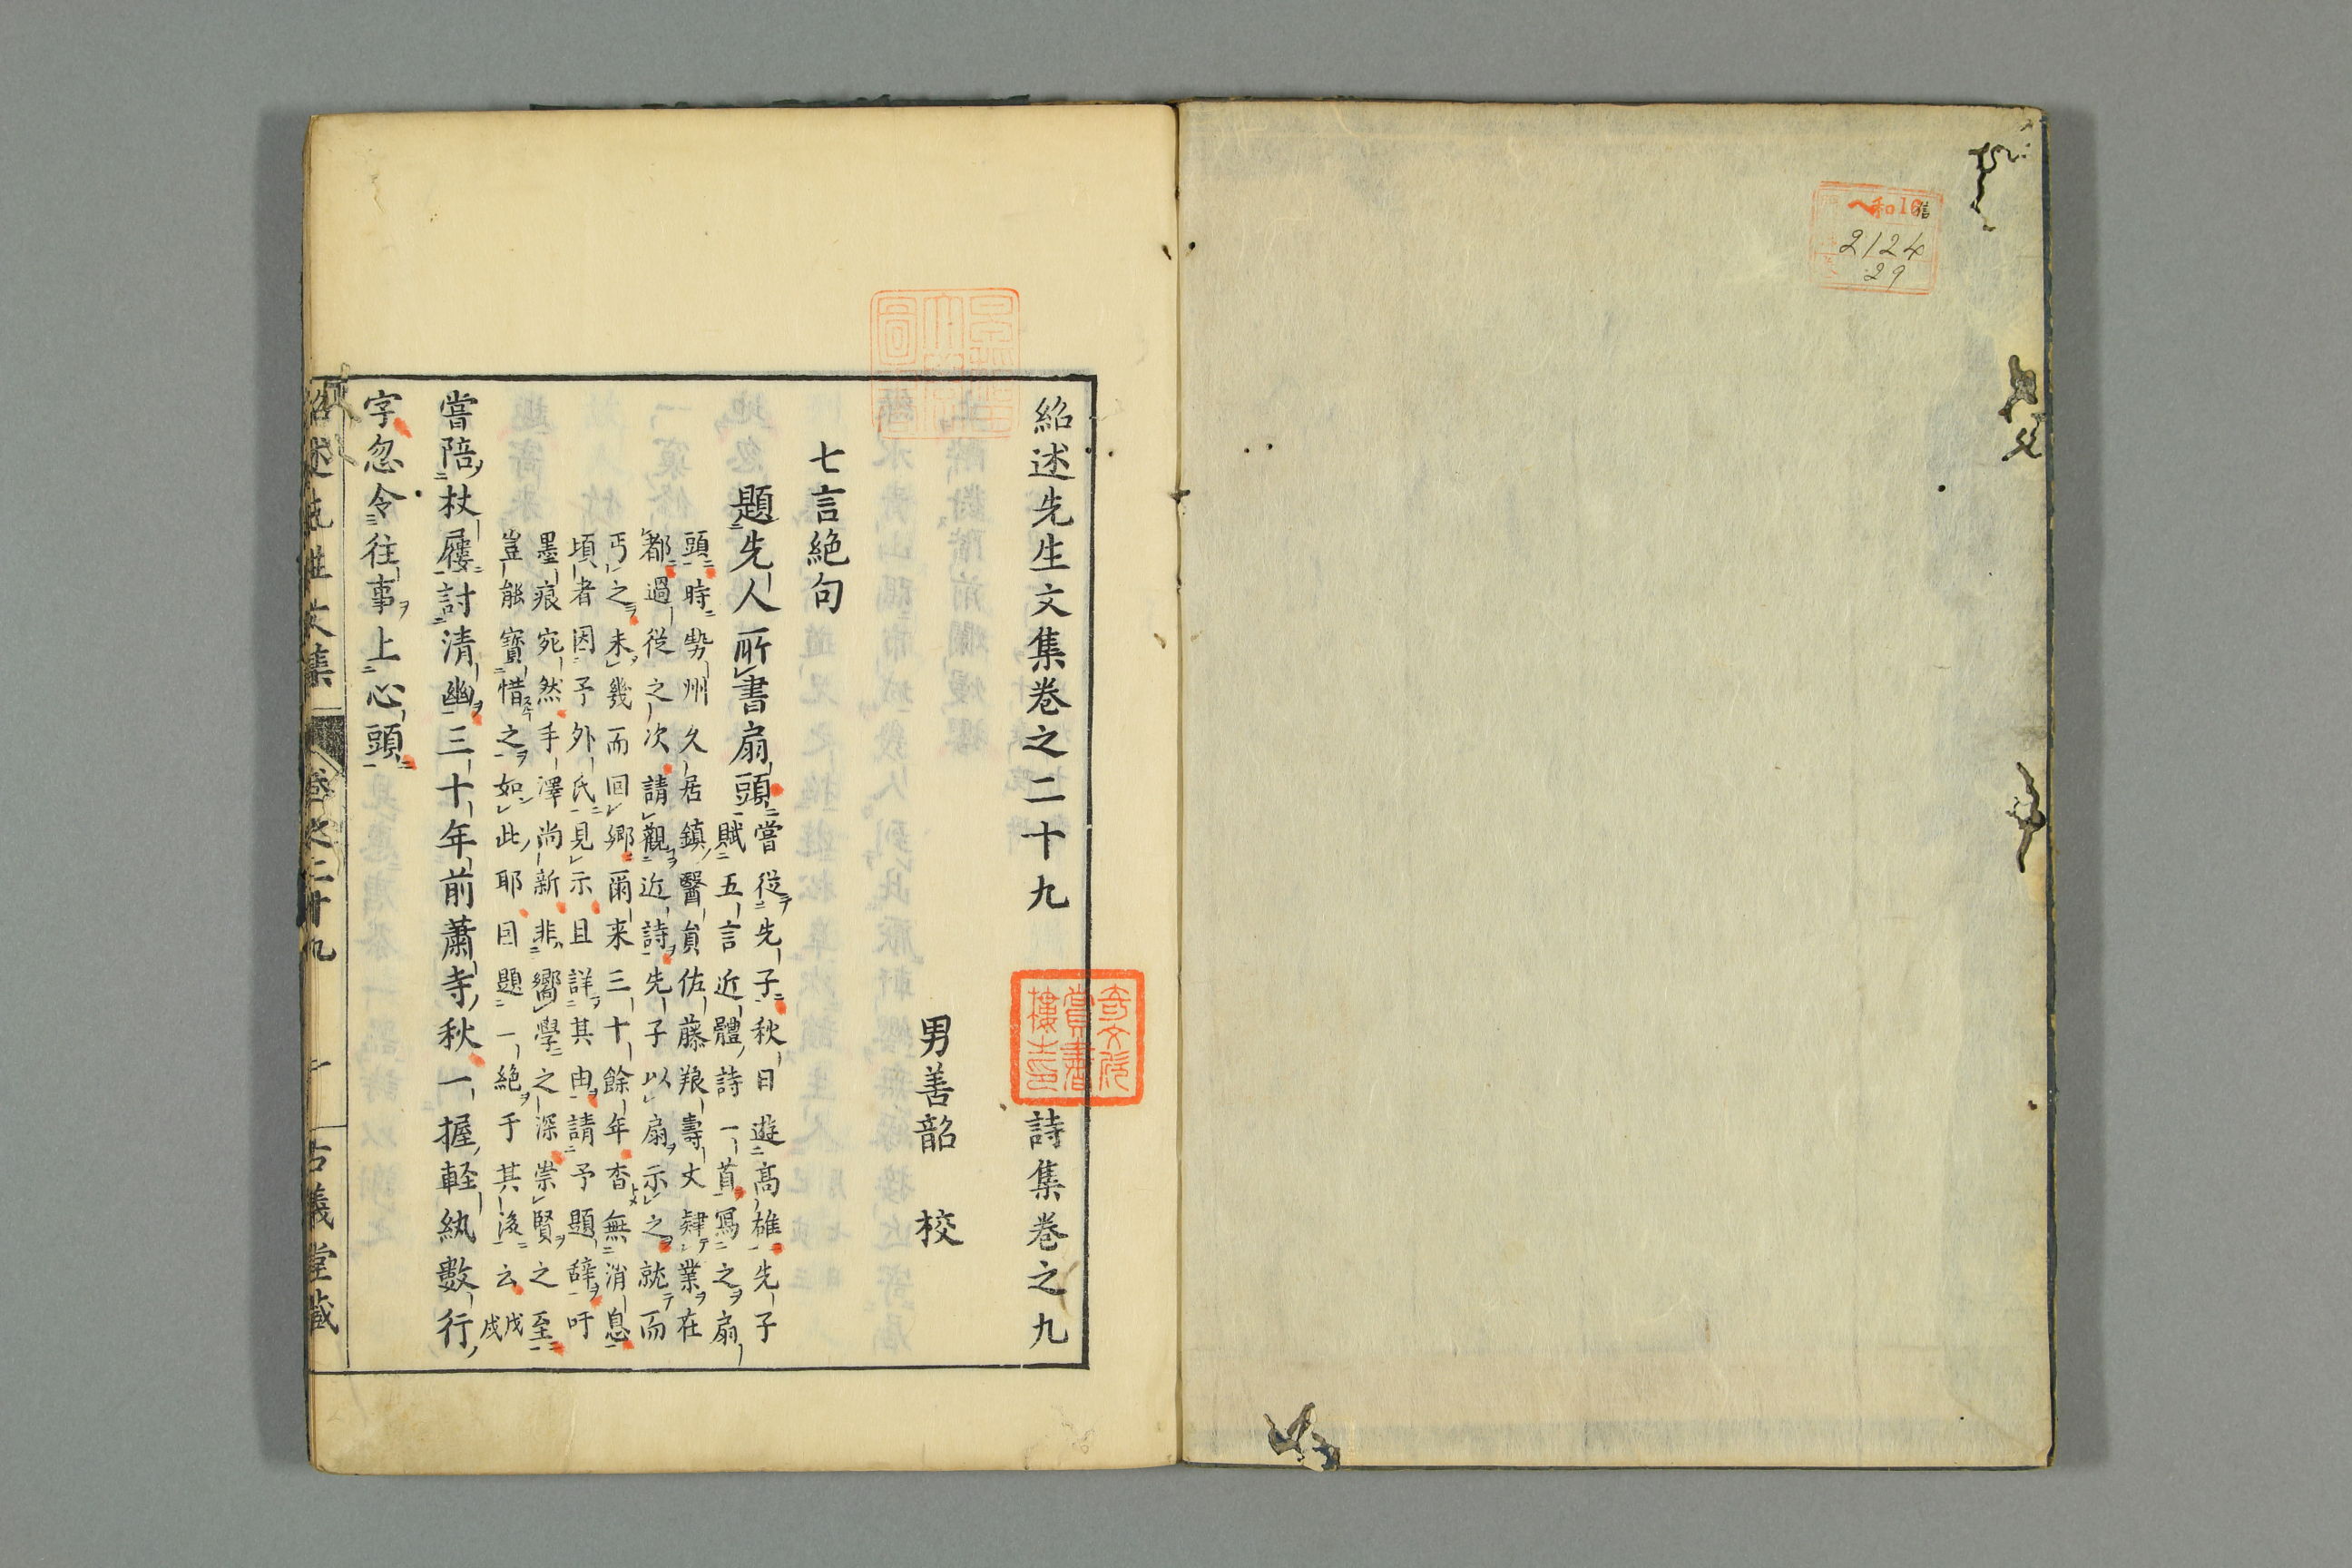 和16信
2124
29
紹述先生文集卷之二十九 詩集卷之九
男善韶 校
七言絕句
題先人所書扇頭
嘗從先子秋日遊高雄先子
賦五言近體詩一首寫之扇
頭時勢州久居鎮醫員佐藤
壽丈肄業在
都過從之次請觀近詩先子以扇示之就而
丐之未幾而回鄉爾来三十餘年杳無消息
頃者因予外氏見示且詳其由請予題辞吁
墨痕宛然手澤尚新非嚮學之深崇賢之至
豈能寶惜之如此耶因題一絕于其後云
戊戌
嘗陪杖屨討清幽三十年前蕭寺秋一握軽紈數行
字忽令往事上心頭
紹述先生文集 卷之二十九 一 古義堂藏